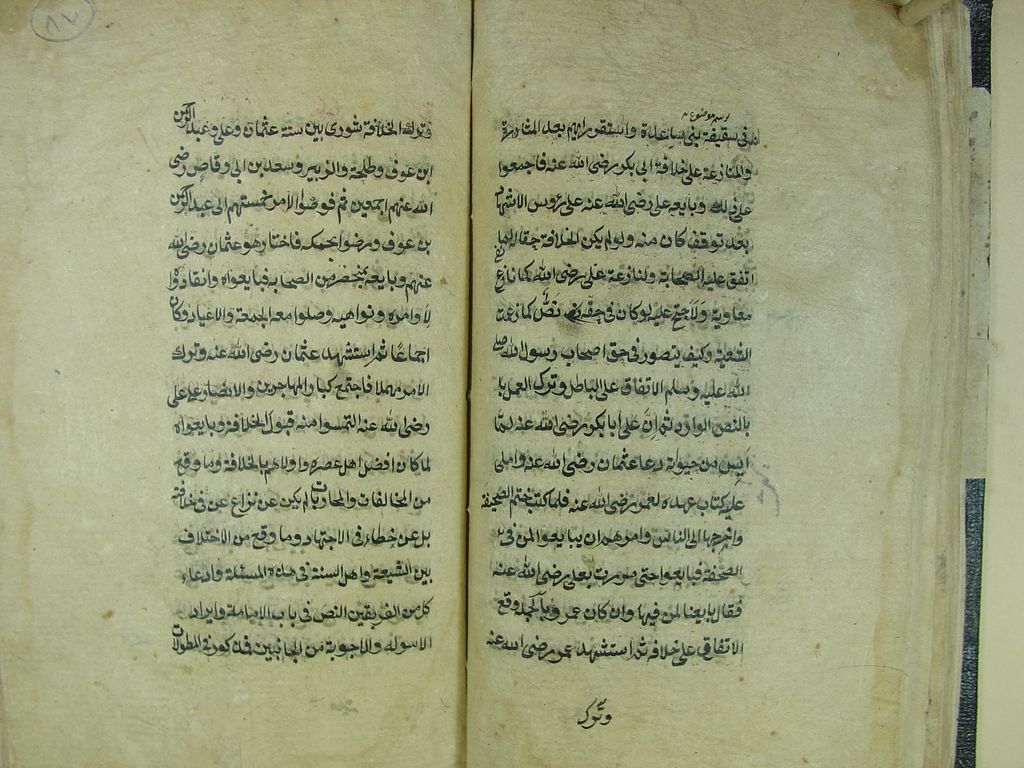 اسم موضوع
في سقيفة بني ساعدة واستقر رايهم بعد المشاورة
والمنازعة على خلافة ابي بكر رضى الله عنه فاجمعوا
على ذلك وبايعه على رضى الله عنه على رؤس الاشهاد
بعد توقف كان منه ولو لم يكن الخلافة حقا له لما
اتفق عليه الصحابة ولنازعة على رضى الله كما نازع
معاوية ولاحتج عليه لو كان في حقه نص كما زعمت
الشيعة وكيف يتصور في حق اصحاب رسول الله صلى
الله عليه وسلم الاتفاق على الباطل وترك العمل با
بالنص الوارد ثم ان على ابا بكر رضى الله عنه لمّا
ايس من حيوته دعا عثمان رضى الله عنه واملى
عليه كتاب عهده لعمر رضى الله عنه فلما كتب ختم الصحيفة
واخرجها الى الناس وامرهم ان يبايعوا لمن في
الصحفة فبايعوا حتى مرت بعلى رضى الله عنه
فقال بايعنا لمن فيها وان كان عمر وبالجملة وقع
الاتفاق على خلافه ثم استشهد عمر رضى الله عنه
وترك
٨٧
وترك الخلافة شورى بين ستة عثمان وعلى وعبد الرحمن
ابن عوف وطلحة والزبير وسعد بن ابى وقاص رضى
الله عنهم اجمعين ثم فوضوا الامر خمستهم الى عبد الرحمن
بن عوف ورضوا بحكمه فاختار هو عثمان رضى الله
عنهم وبايعه بمحضر من الصحابه فبايعواه وانقادواه
لاوامره ونواهيه وصلوا معه الجمعة والاعياد وكان
اجماعًا ثم استشهد عثمان رضى الله عنه وترك
الامر مهملا فاجتمع كبار المهاجرين والانصار على على
رضى الله عنه التمسوا منه قبول الخلافة وبايعواه
لما كان افضل اهل عصره واولاهم بالخلافة وما وقع
من المخالفات والمحاربات لم يكن عن نزاع عن في خلافته
بل عن خطاء في الاجتهاد وما وقع من الاختلاف
بين الشيعة واهل السنة في هذه المسئلة وادعاء
كل من الفريقين النص في باب الامامة وايراد
الاسوله والاجوبة من الجانبين فمذكورة في المطولات